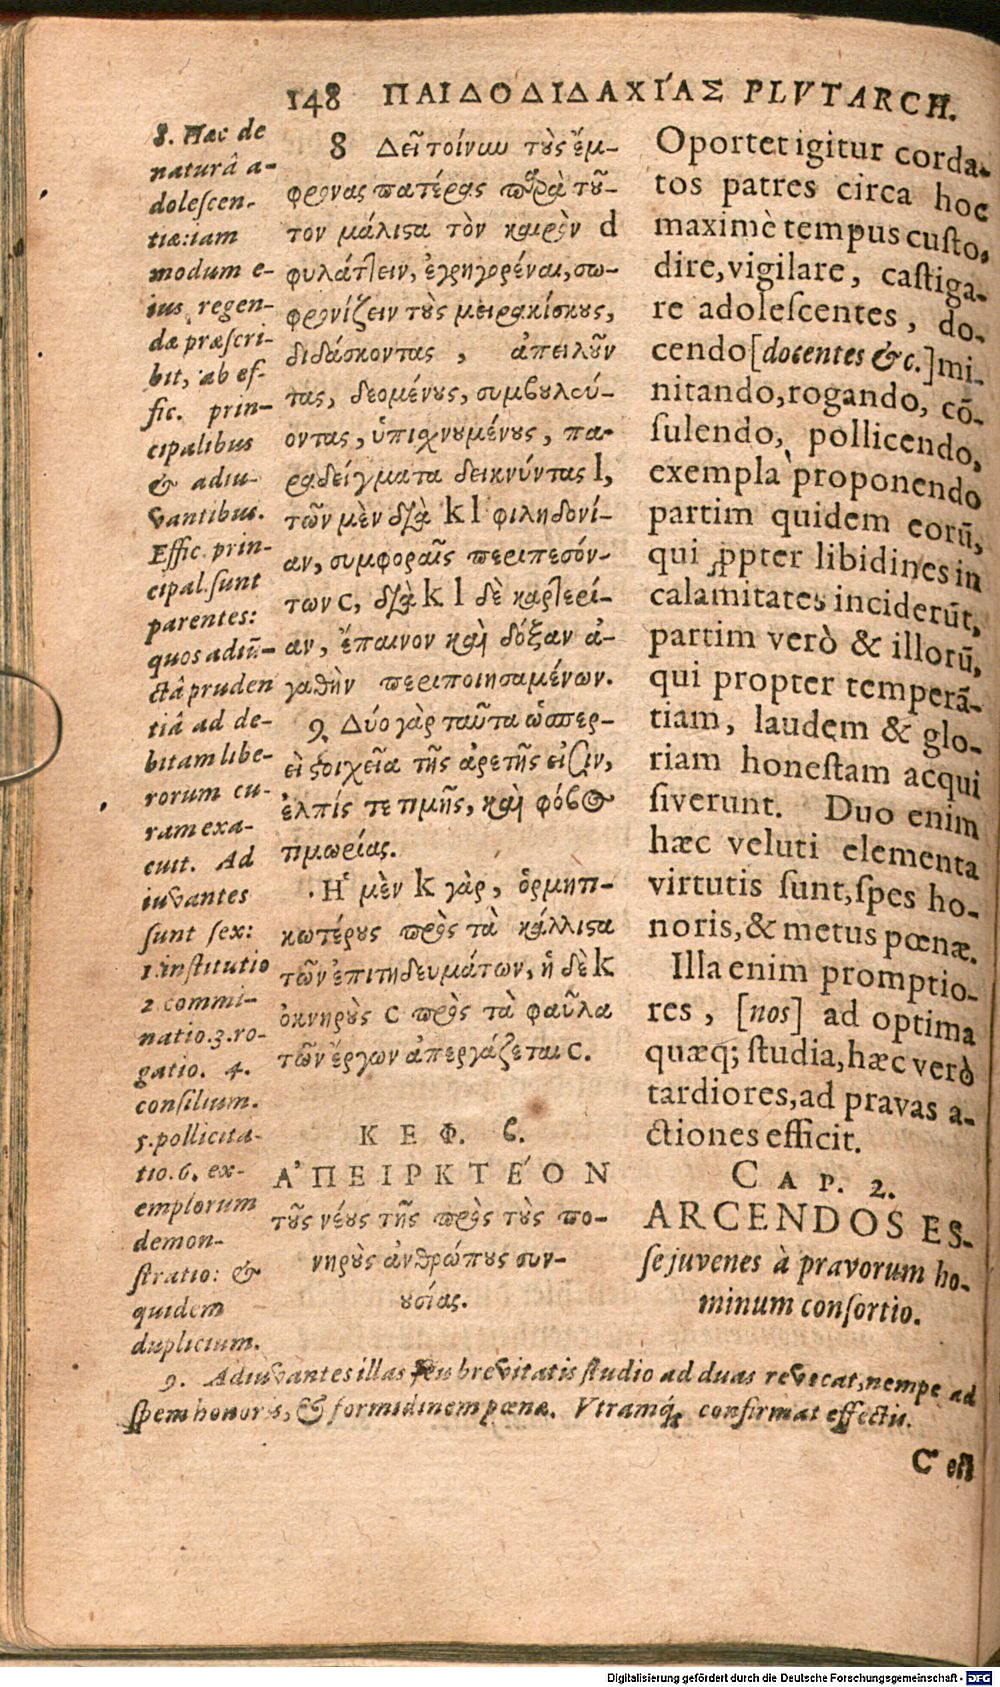 148 ΠΑΙΔΟΔΙΔΑΧΙΆΣ PLVTARCH.
8. Hæc de
naturâ a-
dolescen-
tiæ: iam
modum e-
ius regen-
dæ præscri-
bit, ab ef-
fic. prin-
cipalibus
& adiu-
vantibus.
Effic. prin-
cipal. sunt
parentes:
quos adiũ-
ctâ pruden
tiâ ad de-
bitam libe-
rorum cu-
ram exa-
cuit. Ad
iuvantes
sunt sex:
1. institutio
2. commi-
natio. 3. ro-
gatio. 4.
consilium.
5. pollicita-
tio. 6. ex-
emplorum
demon-
stratio: &
quidem
duplicium.
8 Δεῖ τοίνυν τοὺς ἔμ-
φρονας πατέρας παρὰ τοῦ-
τον μάλιςα τὸν καιρὸν d
φυλάττειν, ἐγρηγορέναι, σω-
φρονίζειν τοὺς μειρακίσκους,
διδάσκοντας, ἀπειλοῦν
τας, δεομένους, συμβουλεύ-
οντας, ὑπιχνουμένους, πα-
ραδείγματα δεικνύντας l,
τῶν μὲν διὰ k l φιληδονί-
αν, συμφοραῖς περιπεσόν-
των c, διὰ k l δὲ καρτερί-
αν, ἔπαινον καὶ δόξαν ἀ-
γαθὴν περιποιησαμένων.
9. Δύο γὰρ ταῦτα ὡσπερ-
εὶ ςοιχεῖα τῆς ἀρετῆς εἰσιν,
ἐλπίς τε τιμῆς, καὶ φόβος
τιμωρίας.
Ἡ μὲν k γὰρ, ὁρμητι-
κωτέρους πρὸς τὰ κάλλιςα
τῶν ἐπιτηδευμάτων, ἡ δὲ k
ὀκνηροὺς c πρὸς τὰ φαῦλα
τῶν ἔργων ἀπεργάζεται c.
ΚΕΦ. ϛ.
ἈΠΕΙΡΚΤΈΟΝ
τοὺς νέους τῆς πρὸς τοὺς πο-
νηροὺς ἀνθρώπους συν-
ουσίας.
Oportet igitur corda-
tos patres circa hoc
maximè tempus custo,
dire, vigilare, castiga-
re adolescentes, do-
cendo [docentes &c.] mi-
nitando, rogando, cō-
sulendo, pollicendo,
exempla proponendo
partim quidem eorũ,
qui ꝓpter libidines in
calamitates inciderũt,
partim verò & illorũ,
qui propter temperā-
tiam, laudem & glo-
riam honestam acqui
siverunt. Duo enim
hæc veluti elementa
virtutis sunt, spes ho-
noris, & metus pœnæ.
Illa enim promptio-
res, [nos] ad optima
quæq; studia, hæc verò
tardiores, ad pravas a-
ctiones efficit.
CAP. 2.
ARCENDOS ES-
se juvenes à pravorum ho-
minum consortio.
9. Adiuvantes illas seu brevitatis studio ad duas revocat, nempe ad
spem honoris, & formidinem pœnæ. Vtramq; confirmat effectu.
Digitalisierung gefördert durch die Deutsche Forschungsgemeinschaft - DFG